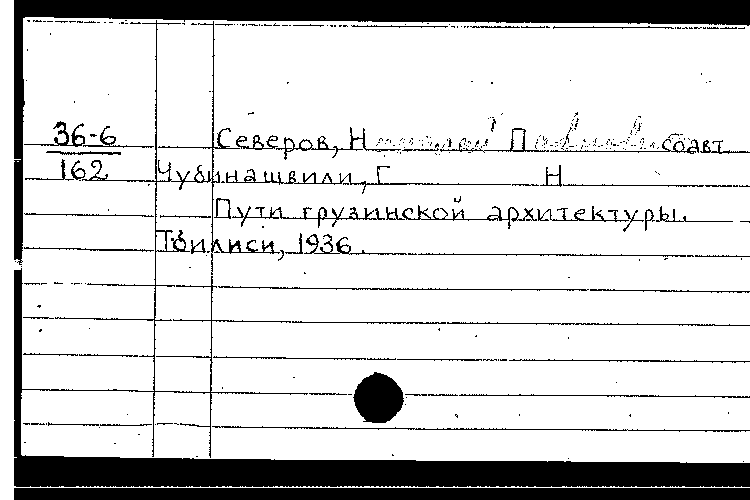 36-6
162
Северов, Николай Павлович соавт
Чубинашвили, Г Н
Пути грузинской архитектуры.
Тбилиси, 1936.